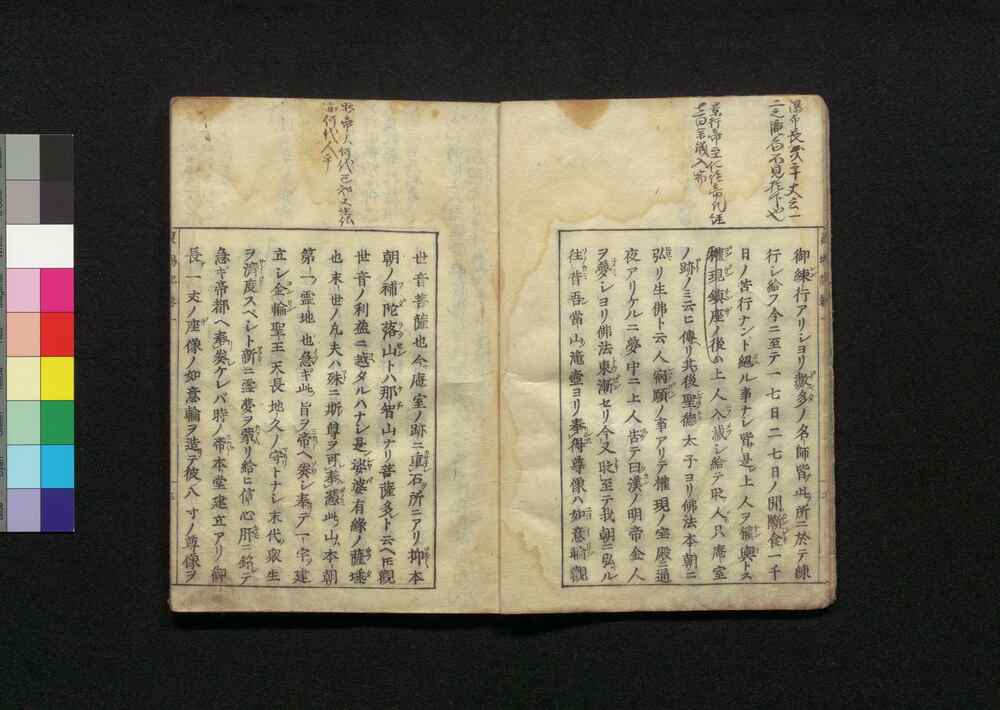 御練行アリショリ數多ノ名師皆此所ニ於テ練
行シ給フ今ニ至テ一七日二七日ノ間斷食一千
日ノ苦行ナント絕ル事ナシ皆是上人ヲ權輿トス
權現鎮座ノ後上人入滅シ給テ人只庵室
ノ跡ノミ云ヒ傳リ其後聖德太子ヨリ佛法本朝ニ
弘リ生佛ト云人宿願ノ事アリテ權現ノ宝殿ニ通
夜アリケルニ夢中ニ上人告テ曰漢ノ明帝金人
ヲ夢シヨリ佛法東漸セリ今又至テ我朝ニ弘ル
往昔吾當山滝壺ヨリ奉得尊像ハ如意輪觀
世音菩薩也今庵室ノ跡ニ車石所ニアリ抑本
朝ノ補陀落山トハ那智山ナリ菩薩多ト云ヘ𪜈觀
世音ノ利益ニ越タルハナシ是娑婆有緣ノ薩埵
也末世ノ凢夫ハ殊ニ斯尊ヲ可奉憑此山本朝
第一ノ霊地也急ギ此旨ヲ帝ヘ奏シ奉テ一宇ヲ建
立シ金輪聖王天長地久ノ守トナシ末代衆生
ヲ濟度スベシト新ニ霊夢ヲ蒙リ給ヒ信心肝ニ銘テ
急ギ帝都ヘ奉奏ケレバ時ノ帝本堂建立アリ御
長一丈ノ座像ノ如意輪ヲ造テ彼八寸ノ尊像ヲ